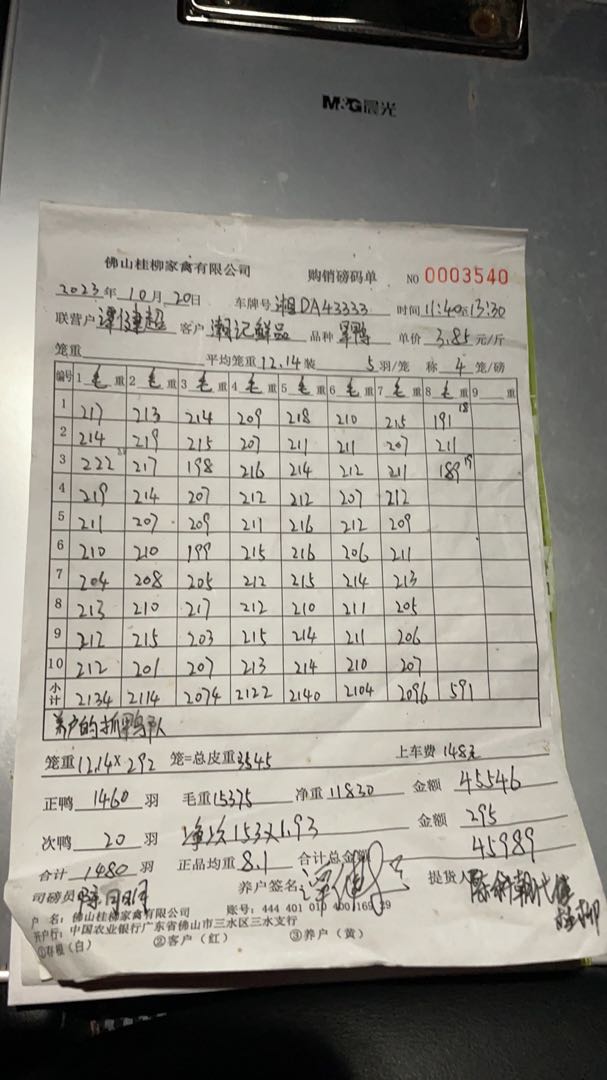 M&G晨光
佛山桂柳家禽有限公司 购销磅码单 NO 0003540
2023年10月20日 车牌号 湘DA43333 时间 11:40至13:30
联营户 谭健超 客户 湘记鲜品 品种 旱鸭 单价 3.85 元/斤
笼重 平均笼重 12.14 装 5 羽/笼 称 4 笼/磅
编号 1 毛 重 2 毛 重 3 毛 重 4 毛 重 5 毛 重 6 毛 重 7 毛 重 8 毛 重 9 重
1 217 213 214 209 218 210 215 191 18
2 214 219 215 207 211 211 207 211
3 222 217 198 216 214 212 211 189 19
4 219 214 207 212 212 207 212
5 211 207 209 211 216 212 209
6 210 210 199 215 216 206 211
7 204 208 205 212 215 214 213
8 213 210 217 212 210 211 205
9 212 215 203 215 214 211 206
10 212 201 207 213 214 210 207
小计 2134 2114 2074 2122 2140 2104 2096 591
养户的抓鸭队
笼重 12.14 × 292 笼=总皮重 3545 上车费 148元
正鸭 1460 羽 毛重 15375 净重 11830 金额 45546
次鸭 20 羽 153×1.93 金额 295
合计 1480 羽 正品均重 8.1 合计总金额 45989
司磅员 养户签名: 提货人
户 名: 佛山桂柳家禽有限公司 账号: 444 401 010 400 169 29
开户行: 中国农业银行广东省佛山市三水区三水支行
①存根(白) ②客户(红) ③养户(黄)